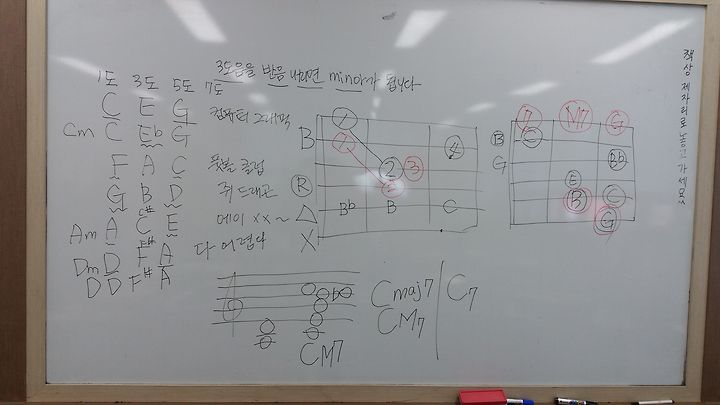 3도음을 반음 내리면 minor가 됩니다
1도 3도 5도 7도
C E G 컴퓨터 그래픽
Cm C Eb G
F A C 풋볼 클럽
G B D 쥐 드래곤
Am A C# E 메이 xx ~
Dm D F A 다 어렵아
D D F# A
B
R
X
1
2
3
4
Bb B C
7 M7 G
B C
G Bb
E
B C
G
CM7
Cmaj7 C7
CM7
책상 제자리로 놓고 가세요